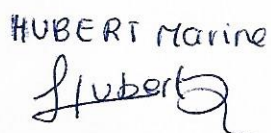 HUBERT Marine
Hubert